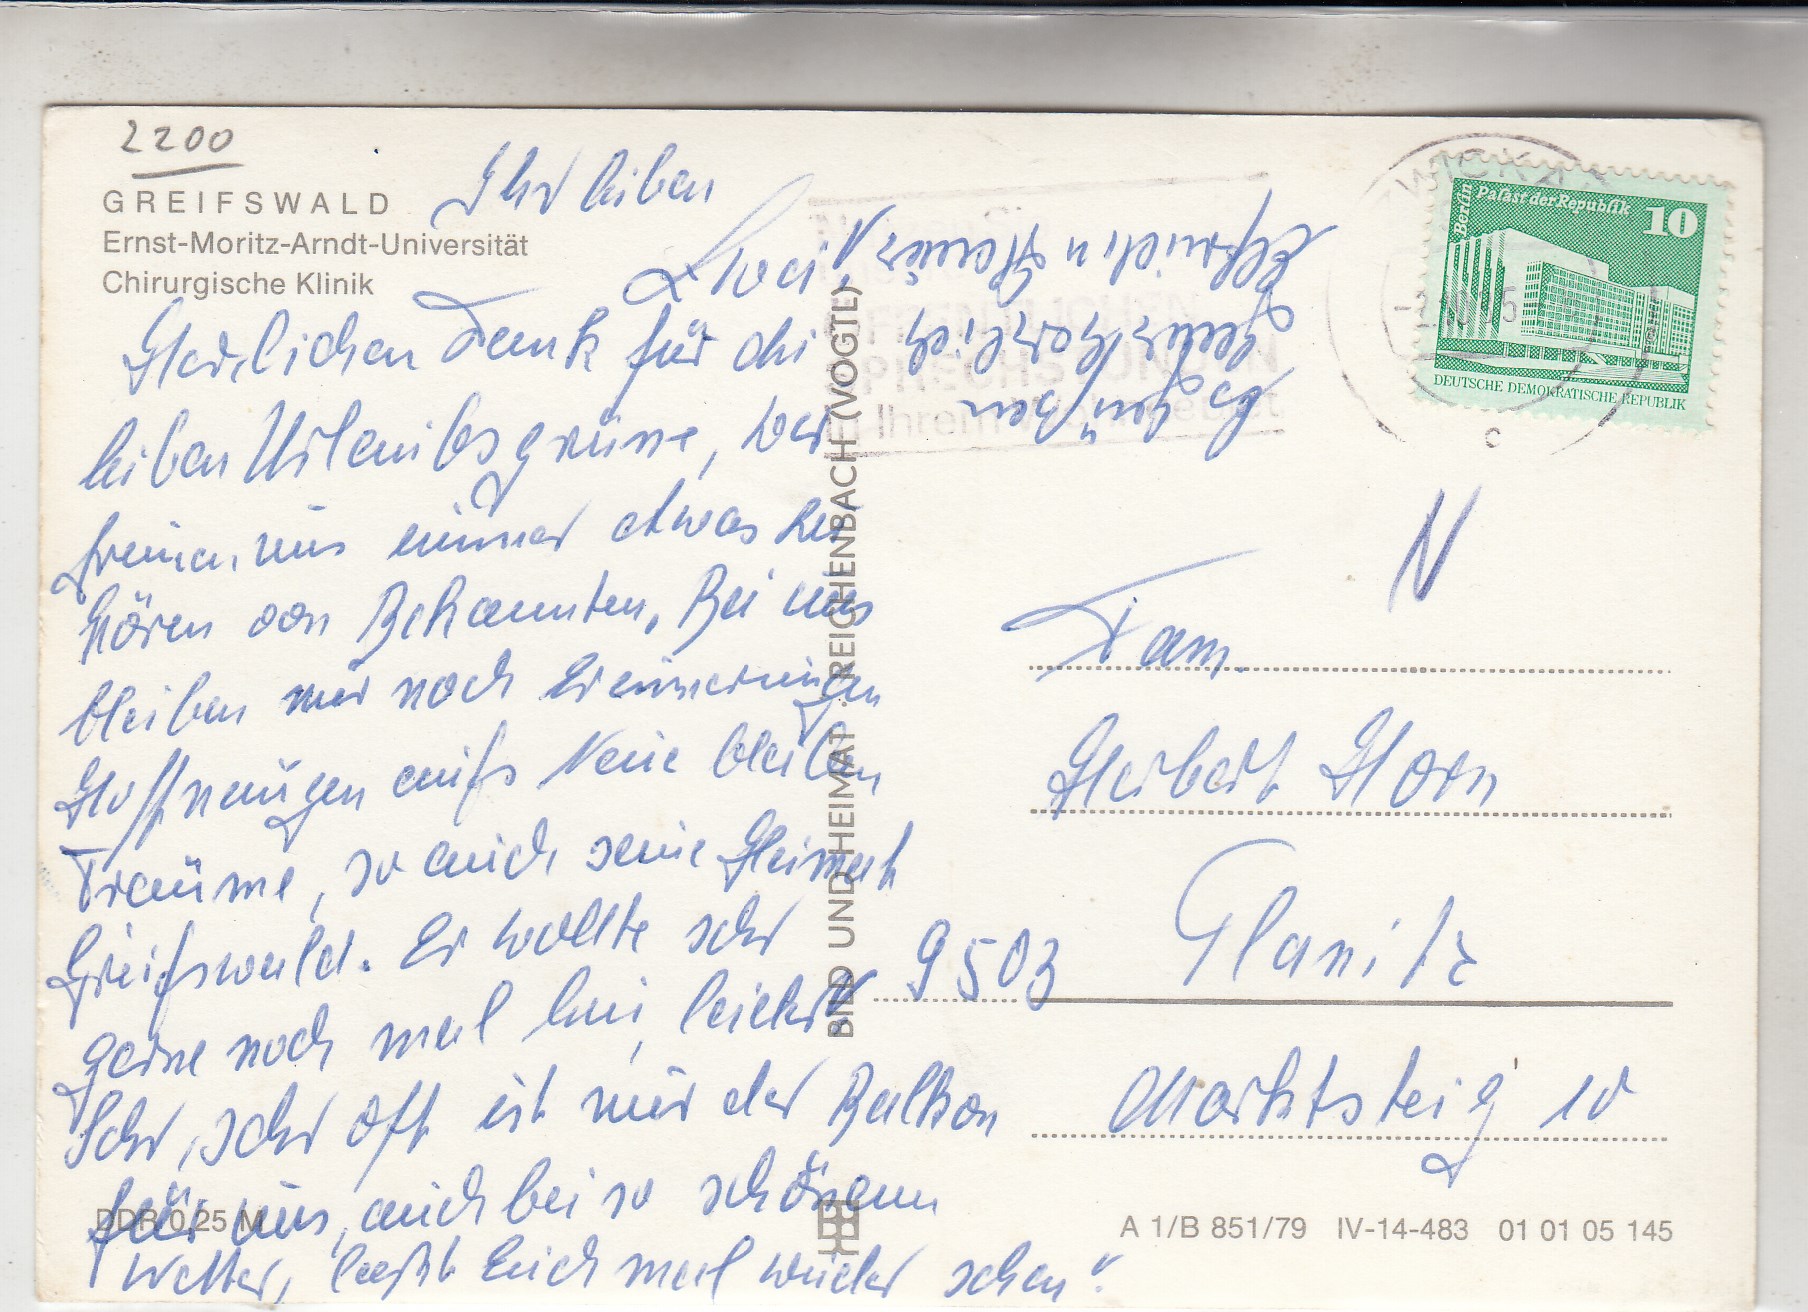 2200
GREIFSWALD
Ernst-Moritz-Arndt-Universität
Chirurgische Klinik
Ihr lieben
Zwei,
Herzlichen Dank für die
lieben Urlaubsgrüsse, wir
freuen uns immer etwas zu
hören von Bekannten, Bei uns
bleiben nur noch Erinnerungen
Hoffnungen aufs Neue bleiben
Träume, so auch seine Heimat
Greifswald. Er wollte sehr
gerne noch mal hin, leider
Sehr, sehr oft ist nur der Balkon
für uns, auch bei so schönem
Wetter, laßt Euch mal wieder sehen!
Es grüßen
herzlich
BILD UND HEIMAT · REICHENBACH (VOGTL)
ÖFFENTLICHEN
SPRECHSTUNDEN
in Ihrem Wohngebiet
Berlin
Palast der Republik
10
DEUTSCHE DEMOKRATISCHE REPUBLIK
c
N
Fam.
Herbert Horn
9503 Planitz
Marktsteig 10
DDR 0,25 M
A 1/B 851/79 IV-14-483 01 01 05 145